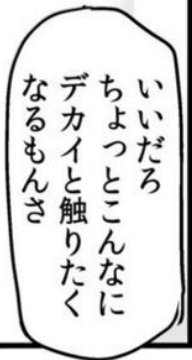 いいだろ
ちょっとこんなに
デカイと触りたく
なるもんさ